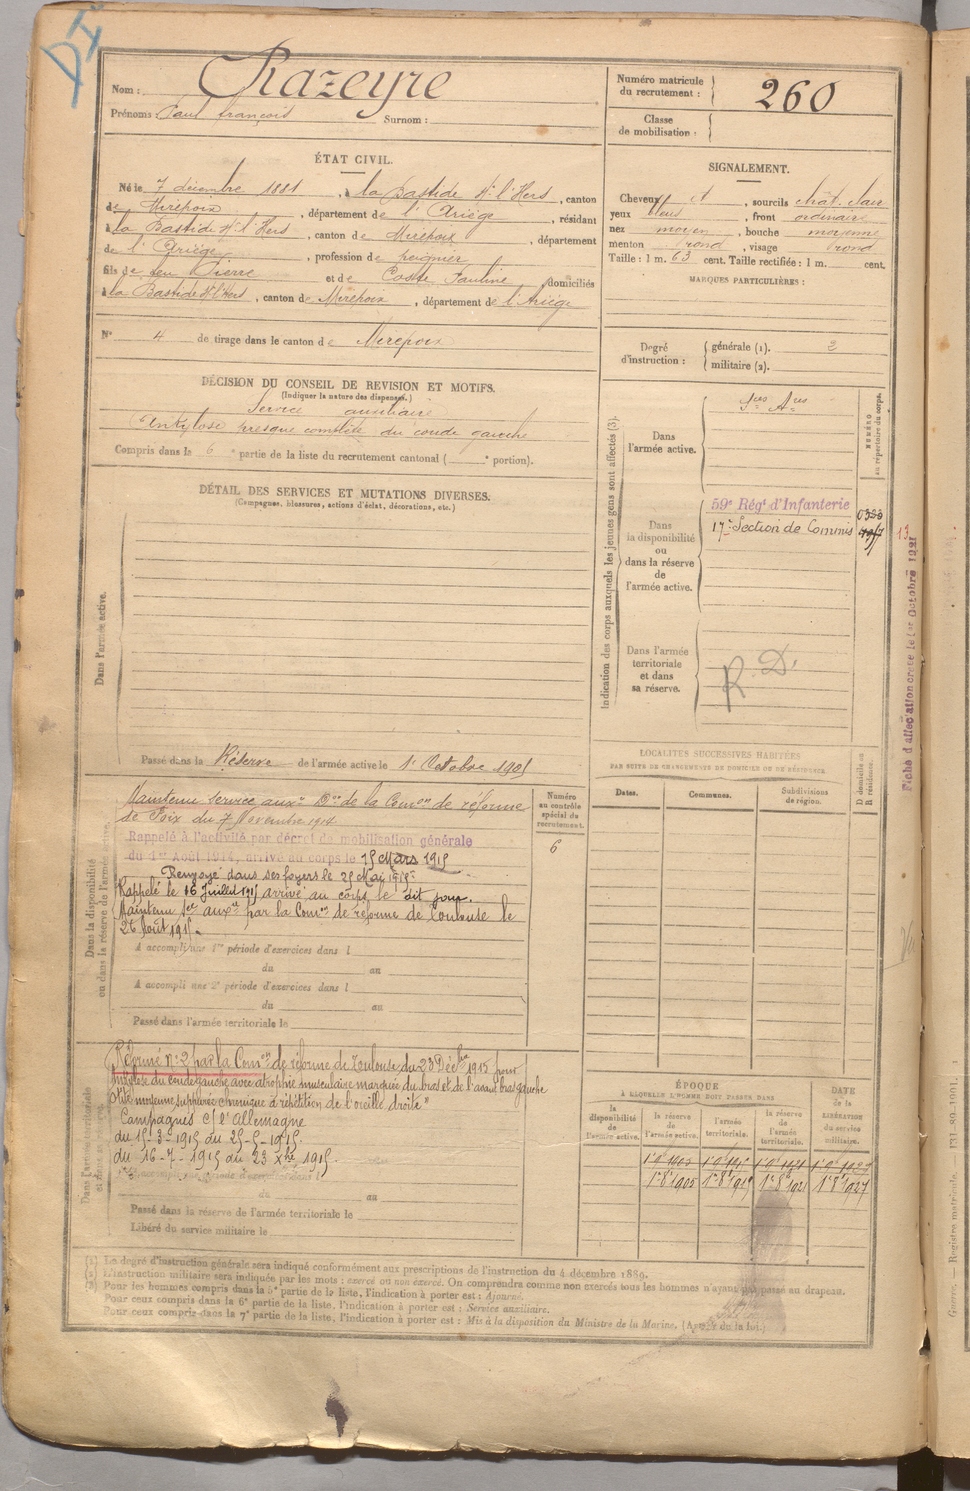 DI
Nom : Razeyre
Prénoms : Paul françois Surnom :
Numéro matricule du recrutement : 260
Classe de mobilisation :
ÉTAT CIVIL.
Né le 7 décembre 1881, à la Bastide s/ l'Hers, canton
de Mirepoix, département de l'Ariège, résidant
à la Bastide s/ l'Hers, canton de Mirepoix, département
de l'Ariège, profession de peignier
fils de feu Pierre et de Coste Pauline, domiciliés
à la Bastide s/ l'Hers, canton de Mirepoix, département de l'Ariège
N° 4 de tirage dans le canton de Mirepoix
SIGNALEMENT.
Cheveux et, sourcils chât. clair
yeux bleus, front ordinaire
nez moyen, bouche moyenne
menton rond, visage rond
Taille : 1 m. 63 cent. Taille rectifiée : 1 m. cent.
MARQUES PARTICULIÈRES :
Degré d'instruction : générale (1). 2
militaire (2).
DÉCISION DU CONSEIL DE REVISION ET MOTIFS.
(Indiquer la nature des dispenses.)
Service auxiliaire
Ankylose presque complète du coude gauche
Compris dans la 6e partie de la liste du recrutement cantonal ( e portion).
DÉTAIL DES SERVICES ET MUTATIONS DIVERSES.
(Campagnes, blessures, actions d'éclat, décorations, etc.)
Dans l'armée active.
Passé dans la Réserve de l'armée active le 1er Octobre 1905
Indication des corps auxquels les jeunes gens sont affectés (3)
NUMÉRO au répertoire du corps.
Dans l'armée active.
Sces Ares
Dans la disponibilité ou dans la réserve de l'armée active.
59e Régt d'Infanterie
17e Section de Commis
Dans l'armée territoriale et dans sa réserve.
R. D.
Fiche d'affectation créée le 1er Octobre 1921
LOCALITÉS SUCCESSIVES HABITÉES
PAR SUITE DE CHANGEMENTS DE DOMICILE OU DE RÉSIDENCE.
Dates. Communes. Subdivisions de région. D domicile ou R résidence.
Dans la disponibilité ou dans la réserve de l'armée active.
Numéro au contrôle spécial du recrutement.
6
Maintenu service auxre Don de la Comon de réforme
de Foix du 7 Novembre 1914
Rappelé à l'activité par décret de mobilisation générale
du 1er Août 1914, arrivé au corps le 15 Mars 1915
Renvoyé dans ses foyers le 25 Mai 1915
Rappelé le 16 Juillet 1915 arrivé au corps le dit jour.
Maintenu sce auxre par la Comon de réforme de Toulouse le
26 Août 1915.
A accompli une 1re période d'exercices dans l
du au
A accompli une 2e période d'exercices dans l
du au
Passé dans l'armée territoriale le
Réformé n° 2 par la Comon de réforme de Toulouse du 23 Décbre 1915 pour
Ankylose du coude gauche avec atrophie musculaire marquée du bras et de l'avant bras gauche
otite moyenne suppurée chronique à répétition de l'oreille droite"
Campagnes c/ l'Allemagne
du 15-3-1915 au 25-5-1915.
du 16-7-1915 au 23 Xbre 1915.
du au
Passé dans la réserve de l'armée territoriale le
Libéré du service militaire le
ÉPOQUE
À LAQUELLE L'HOMME DOIT PASSER DANS
la disponibilité de l'armée active. la réserve de l'armée active. l'armée territoriale. la réserve de l'armée territoriale. DATE de la LIBÉRATION du service militaire.
1er 8 1905 1er 8 1915 1er 8 1921 1er 8 1927
(1) Le degré d'instruction générale sera indiqué conformément aux prescriptions de l'instruction du 4 décembre 1889.
(2) L'instruction militaire sera indiquée par les mots : exercé ou non exercé. On comprendra comme non exercés tous les hommes n'ayant pas passé au drapeau.
(3) Pour les hommes compris dans la 5e partie de la liste, l'indication à porter est : Ajourné.
Pour ceux compris dans la 6e partie de la liste, l'indication à porter est : Service auxiliaire.
Pour ceux compris dans la 7e partie de la liste, l'indication à porter est : Mis à la disposition du Ministre de la Marine. de la loi.)
Guerre. — Registre matricule. — 131-89-1901.